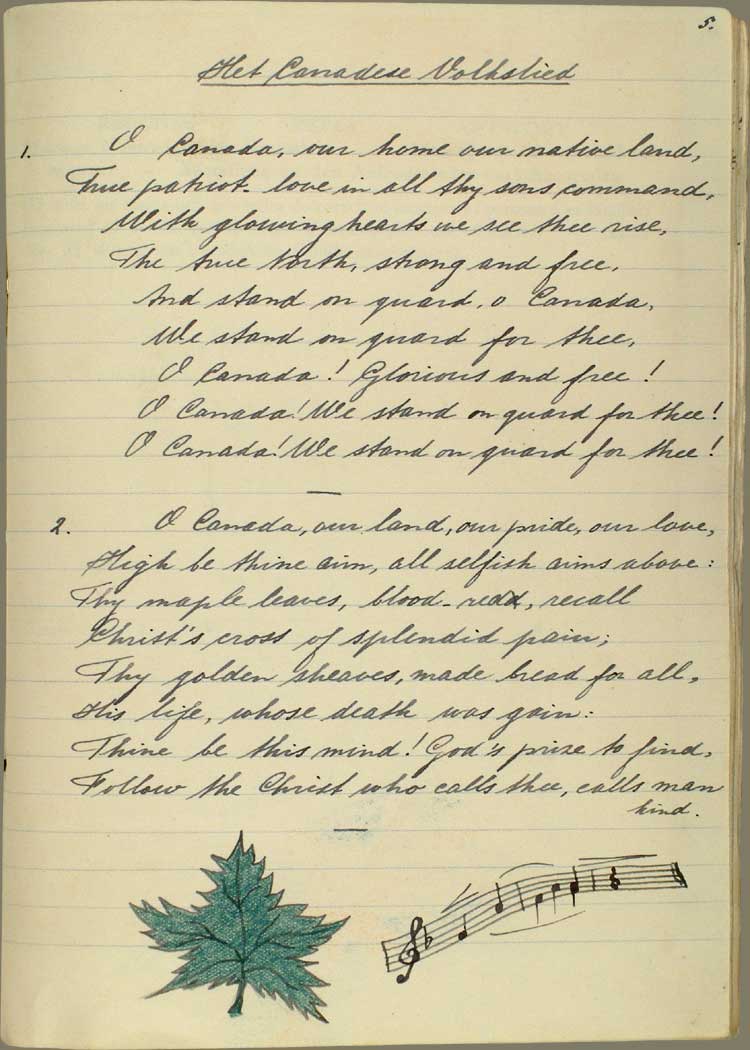 5.
Het Canadese Volkslied
1. O Canada, our home our native land,
True patriot-love in all thy sons command,
With glowing hearts we see thee rise,
The true North, strong and free,
And stand on guard, o Canada,
We stand on guard for thee,
O Canada! Glorious and free!
O Canada! We stand on guard for thee!
O Canada! We stand on guard for thee!
2. O Canada, our land, our pride, our love,
High be thine aim, all selfish aims above:
Thy maple leaves, blood-red, recall
Christ's cross of splendid pain;
Thy golden sheaves, made bread for all,
His life, whose death was gain:
Thine be this mind! God's prize to find,
Follow the Christ who calls thee, calls man
kind.